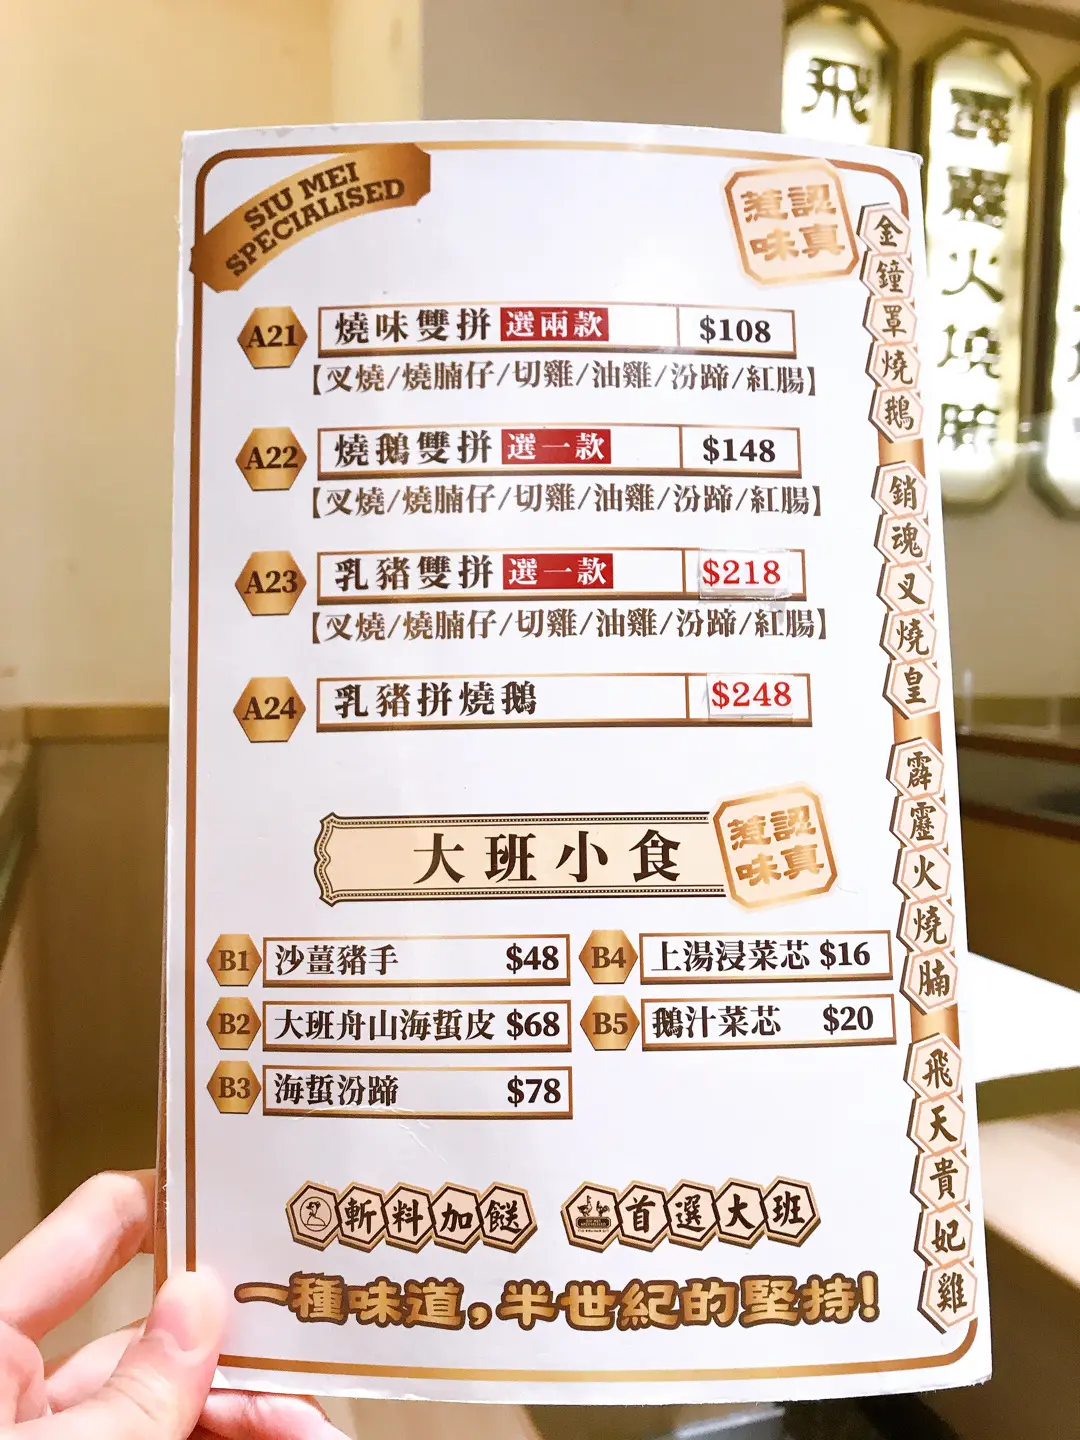 SIU MEI
SPECIALISED
惹認
味真
A21 燒味雙拼 選兩款 $108
【叉燒/燒腩仔/切雞/油雞/汾蹄/紅腸】
A22 燒鵝雙拼 選一款 $148
【叉燒/燒腩仔/切雞/油雞/汾蹄/紅腸】
A23 乳豬雙拼 選一款 $218
【叉燒/燒腩仔/切雞/油雞/汾蹄/紅腸】
A24 乳豬拼燒鵝 $248
大班小食
惹認
味真
B1 沙薑豬手 $48
B2 大班舟山海蜇皮 $68
B3 海蜇汾蹄 $78
B4 上湯浸菜芯 $16
B5 鵝汁菜芯 $20
斬料加餸
首選大班
一種味道,半世紀的堅持!
金鐘罩燒鵝
銷魂叉燒皇
霹靂火燒腩
飛天貴妃雞
飛
霹靂火燒腩